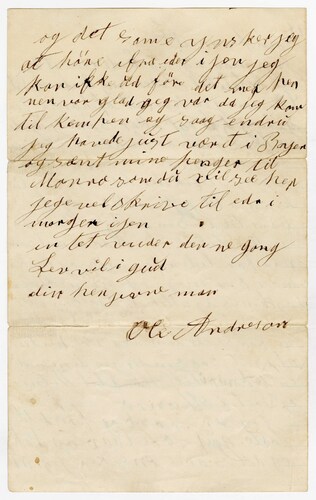 og det some ynsker jeg
at høre ifra eder i jen jeg
kan ikke ud føre det med pen
nen vor glad jeg var da jeg kom
til kampen og saag endru
jeg havede just vært i Byen
og sænt mine penger til
Monro som du vil se her
jeg vel skrive til eder i
morgen i jen
in tet vider denne gang
Lev vel i gud
din hen man
Ole Andreson